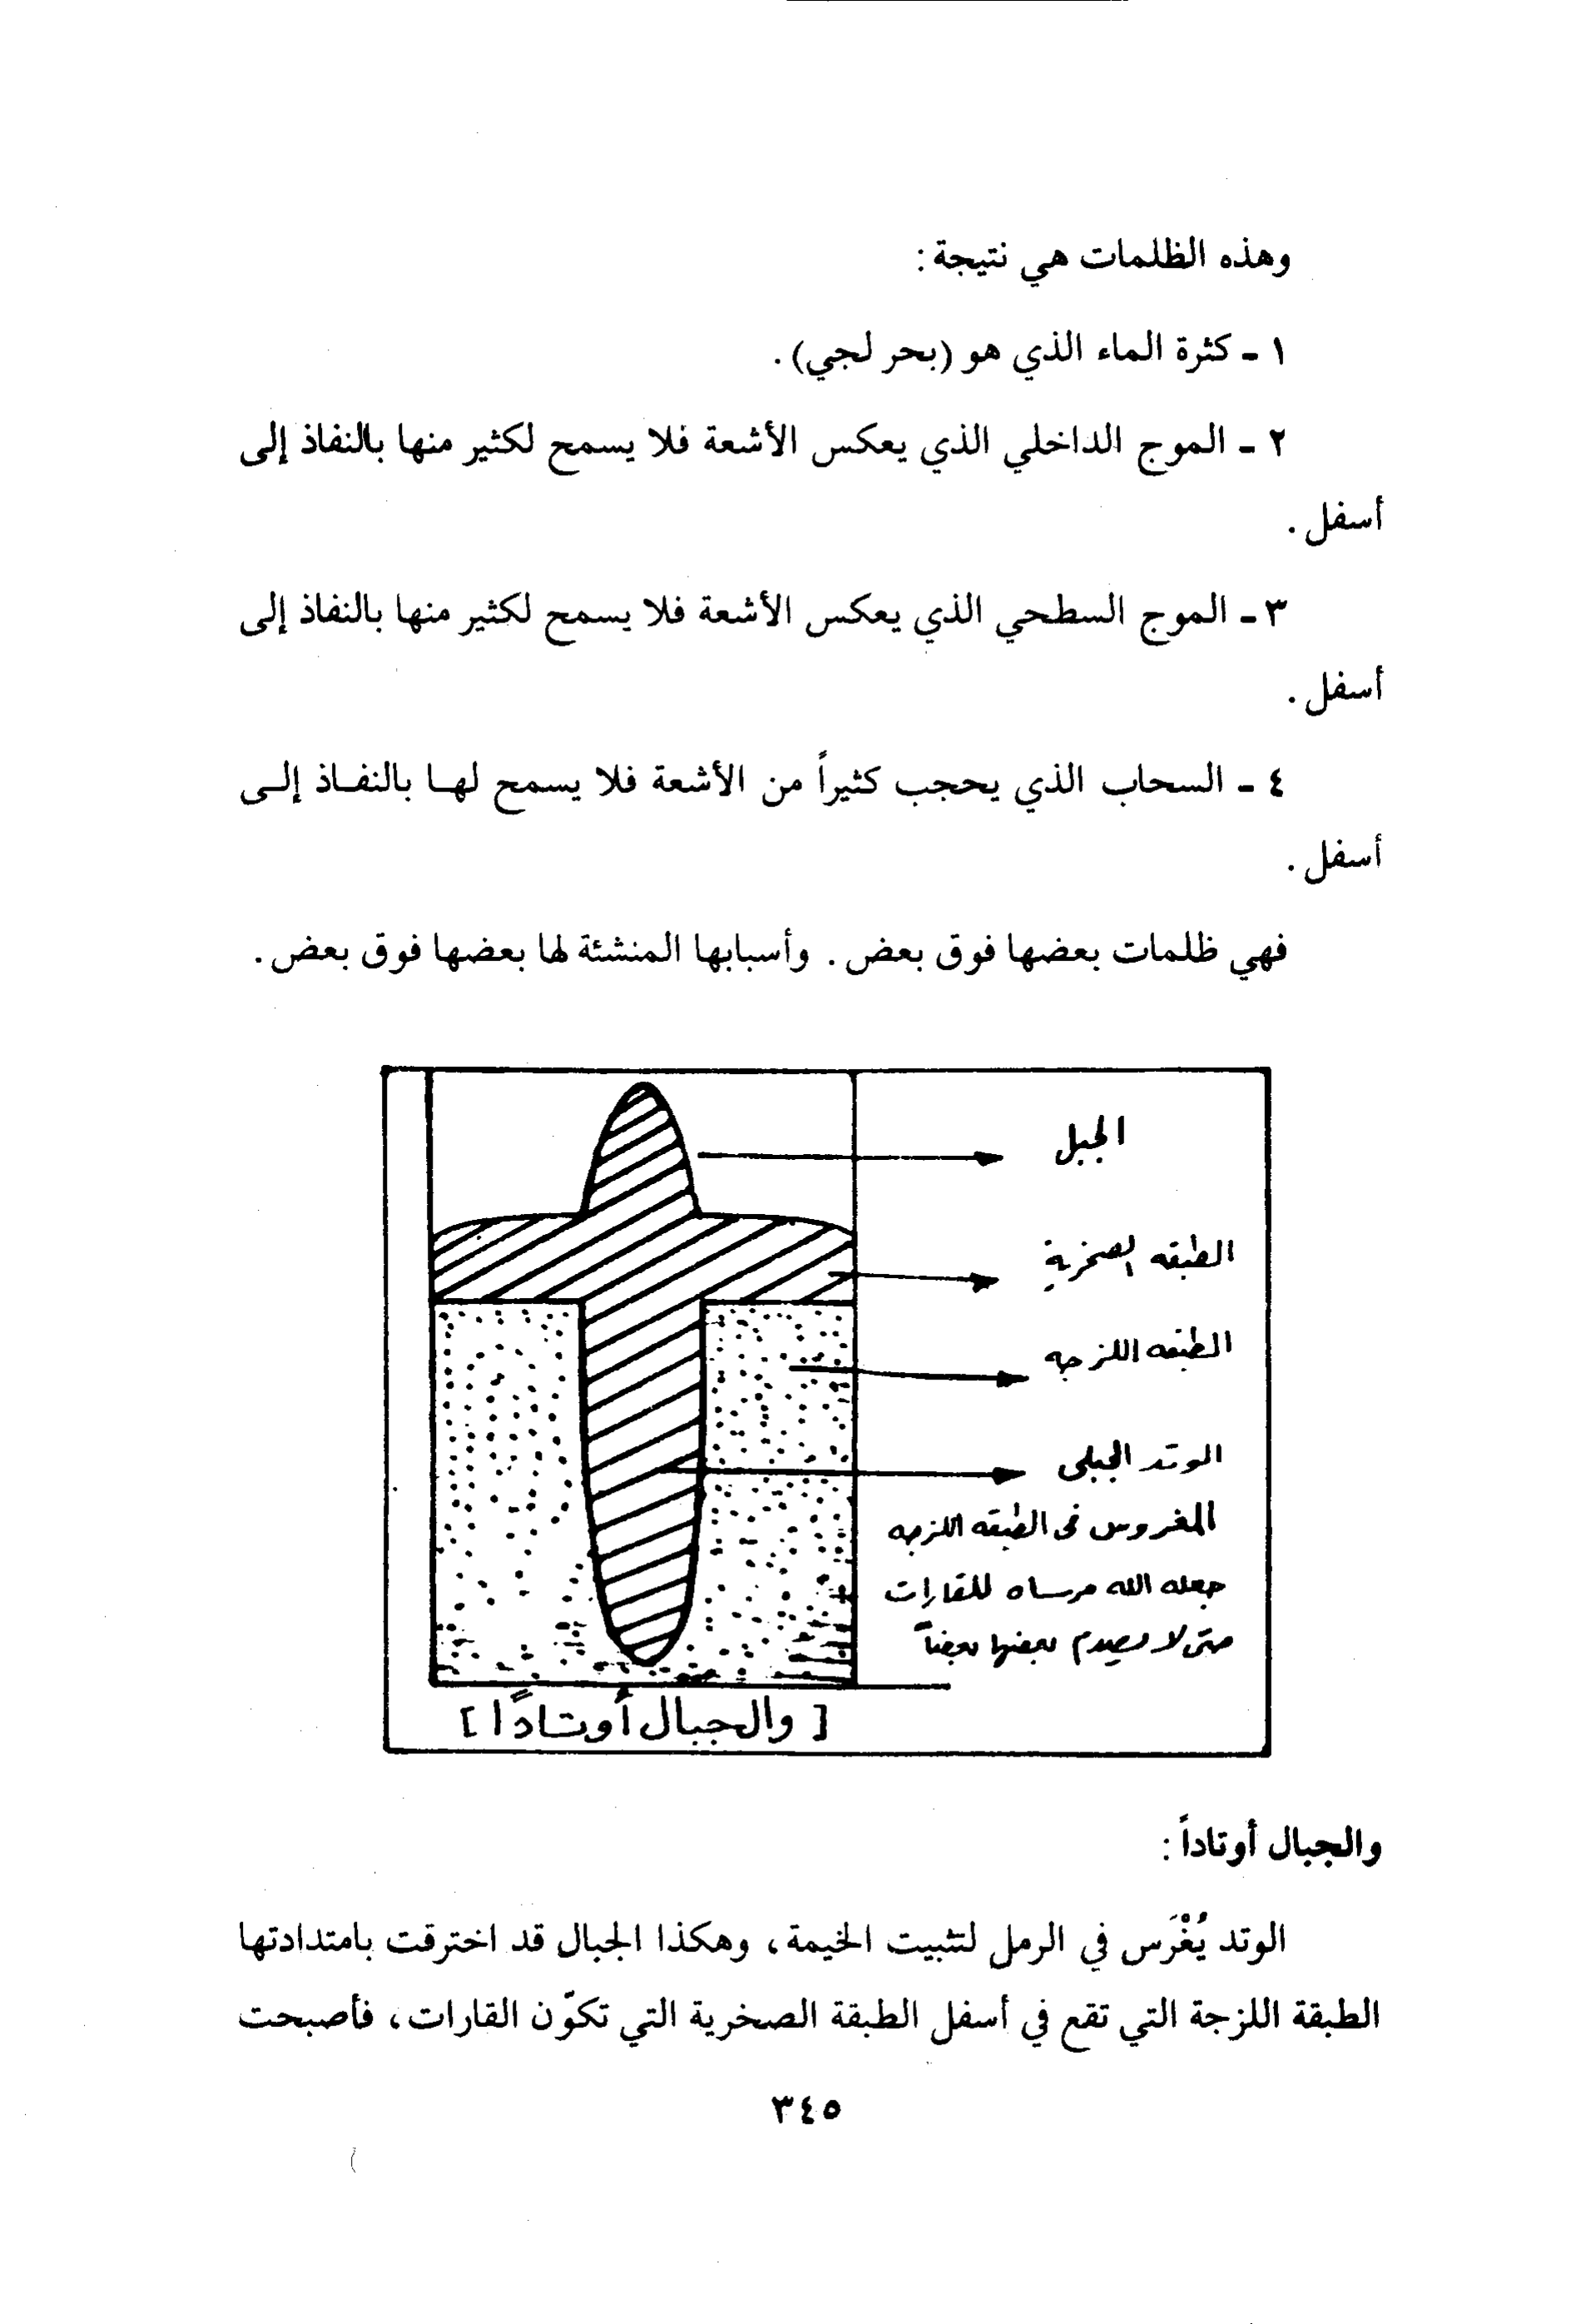 وهذه الظلمات هي نتيجة :
١ - كثرة الماء الذي هو (بحر لجي) .
٢ - الموج الداخلي الذي يعكس الأشعة فلا يسمح لكثير منها بالنفاذ إلى
أسفل .
٣ - الموج السطحي الذي يعكس الأشعة فلا يسمح لكثير منها بالنفاذ إلى
أسفل .
٤ - السحاب الذي يحجب كثيراً من الأشعة فلا يسمح لهـا بالنفـاذ إلـى
أسفل .
فهي ظلمات بعضها فوق بعض . وأسبابها المنشئة لها بعضها فوق بعض .
الجبل
الطبقه الصخرية
الطبقه اللزجه
الوتد الجبلى
المغروس فى الطبقه اللزجه
جعله الله مرساه للقارات
حتى لا يصدم بعضها بعضاً
[ والجبال أوتادًا ]
والجبال أوتاداً :
الوتد يُغْرَس في الرمل لتثبيت الخيمة ، وهكذا الجبال قد اخترقت بامتدادتها
الطبقة اللزجة التي تقع في أسفل الطبقة الصخرية التي تكوّن القارات ، فأصبحت
٣٤٥